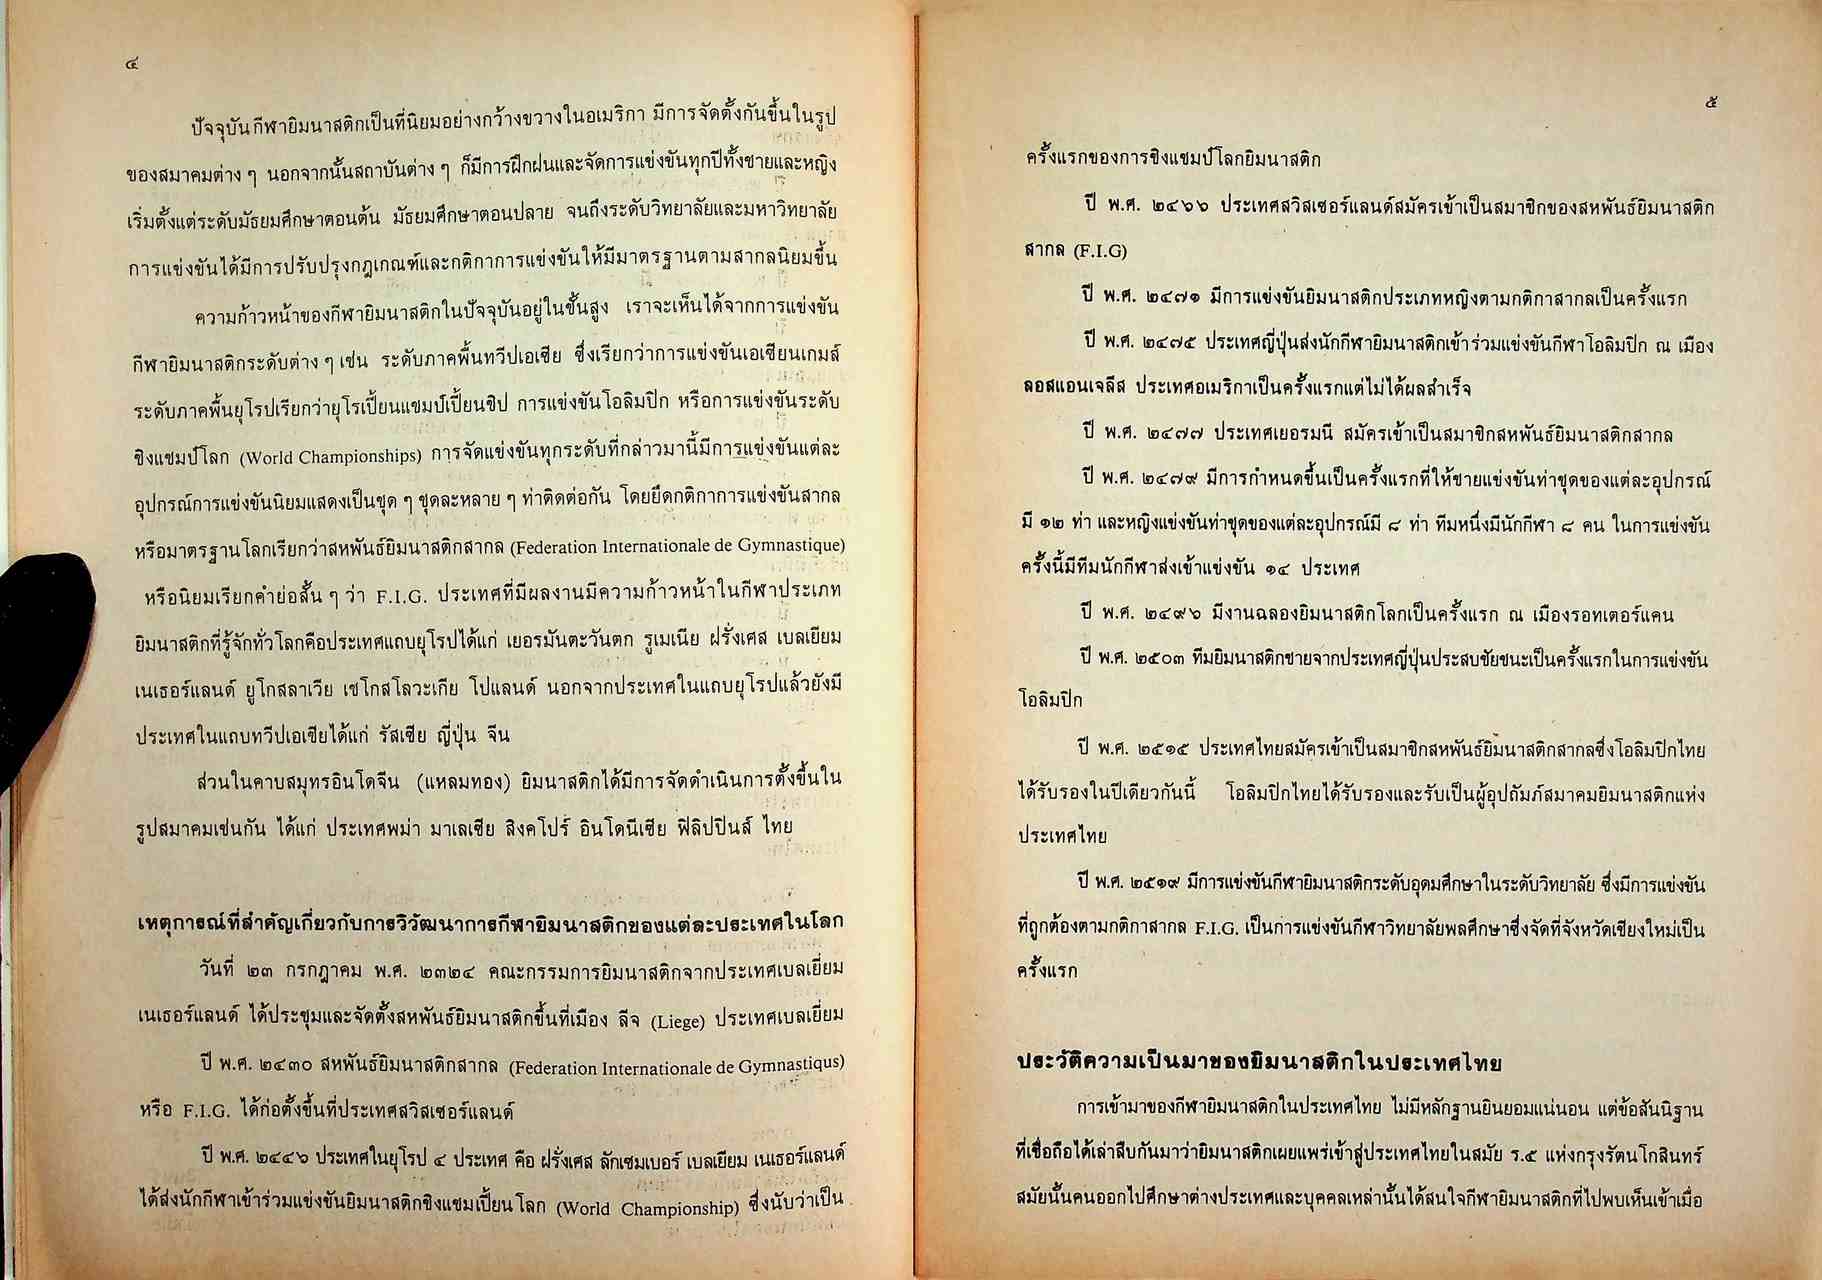 ๔
ปัจจุบันกีฬายิมนาสติกเป็นที่นิยมอย่างกว้างขวางในอเมริกา มีการจัดตั้งกันขึ้นในรูป
ของสมาคมต่าง ๆ นอกจากนั้นสถาบันต่าง ๆ ก็มีการฝึกฝนและจัดการแข่งขันทุกปีทั้งชายและหญิง
เริ่มตั้งแต่ระดับมัธยมศึกษาตอนต้น มัธยมศึกษาตอนปลาย จนถึงระดับวิทยาลัยและมหาวิทยาลัย
การแข่งขันได้มีการปรับปรุงกฎเกณฑ์และกติกาการแข่งขันให้มีมาตรฐานตามสากลนิยมขึ้น
ความก้าวหน้าของกีฬายิมนาสติกในปัจจุบันอยู่ในขั้นสูง เราจะเห็นได้จากการแข่งขัน
กีฬายิมนาสติกระดับต่าง ๆ เช่น ระดับภาคพื้นทวีปเอเซีย ซึ่งเรียกว่าการแข่งขันเอเซียนเกมส์
ระดับภาคพื้นยุโรปเรียกว่ายุโรเปี้ยนแชมป์เปี้ยนชิป การแข่งขันโอลิมปิก หรือการแข่งขันระดับ
ชิงแชมป์โลก (World Championships) การจัดแข่งขันทุกระดับที่กล่าวมานี้มีการแข่งขันแต่ละ
อุปกรณ์การแข่งขันนิยมแสดงเป็นชุด ๆ ชุดละหลาย ๆ ท่าติดต่อกัน โดยยึดกติกาการแข่งขันสากล
หรือมาตรฐานโลกเรียกว่าสหพันธ์ยิมนาสติกสากล (Federation Internationale de Gymnastique)
หรือนิยมเรียกคำย่อสั้น ๆ ว่า F.I.G. ประเทศที่มีผลงานมีความก้าวหน้าในกีฬาประเภท
ยิมนาสติกที่รู้จักทั่วโลกคือประเทศแถบยุโรปได้แก่ เยอรมันตะวันตก รูเมเนีย ฝรั่งเศส เบลเยียม
เนเธอร์แลนด์ ยูโกสลาเวีย เชโกสโลวะเกีย โปแลนด์ นอกจากประเทศในแถบยุโรปแล้วยังมี
ประเทศในแถบทวีปเอเซียได้แก่ รัสเซีย ญี่ปุ่น จีน
ส่วนในคาบสมุทรอินโดจีน (แหลมทอง) ยิมนาสติกได้มีการจัดดำเนินการตั้งขึ้นใน
รูปสมาคมเช่นกัน ได้แก่ ประเทศพม่า มาเลเซีย สิงคโปร์ อินโดนีเซีย ฟิลิปปินส์ ไทย
เหตุการณ์ที่สำคัญเกี่ยวกับการวิวัฒนาการกีฬายิมนาสติกของแต่ละประเทศในโลก
วันที่ ๒๓ กรกฎาคม พ.ศ. ๒๓๒๔ คณะกรรมการยิมนาสติกจากประเทศเบลเยี่ยม
เนเธอร์แลนด์ ได้ประชุมและจัดตั้งสหพันธ์ยิมนาสติกขึ้นที่เมือง ลีจ (Liege) ประเทศเบลเยี่ยม
ปี พ.ศ. ๒๔๓๐ สหพันธ์ยิมนาสติกสากล (Federation Internationale de Gymnastiqus)
หรือ F.I.G. ได้ก่อตั้งขึ้นที่ประเทศสวิสเซอร์แลนด์
ปี พ.ศ. ๒๔๔๖ ประเทศในยุโรป ๔ ประเทศ คือ ฝรั่งเศส ลักเซมเบอร์ เบลเยียม เนเธอร์แลนด์
ได้ส่งนักกีฬาเข้าร่วมแข่งขันยิมนาสติกชิงแชมเปี้ยนโลก (World Championship) ซึ่งนับว่าเป็น
๕
ครั้งแรกของการชิงแชมป์โลกยิมนาสติก
ปี พ.ศ. ๒๔๖๖ ประเทศสวิสเซอร์แลนด์สมัครเข้าเป็นสมาชิกของสหพันธ์ยิมนาสติก
สากล (F.I.G)
ปี พ.ศ. ๒๔๗๑ มีการแข่งขันยิมนาสติกประเภทหญิงตามกติกาสากลเป็นครั้งแรก
ปี พ.ศ. ๒๔๗๕ ประเทศญี่ปุ่นส่งนักกีฬายิมนาสติกเข้าร่วมแข่งขันกีฬาโอลิมปิก ณ เมือง
ลอสแอนเจลีส ประเทศอเมริกาเป็นครั้งแรกแต่ไม่ได้ผลสำเร็จ
ปี พ.ศ. ๒๔๗๗ ประเทศเยอรมนี สมัครเข้าเป็นสมาชิกสหพันธ์ยิมนาสติกสากล
ปี พ.ศ. ๒๔๗๙ มีการกำหนดขึ้นเป็นครั้งแรกที่ให้ชายแข่งขันท่าชุดของแต่ละอุปกรณ์
มี ๑๒ ท่า และหญิงแข่งขันท่าชุดของแต่ละอุปกรณ์มี ๘ ท่า ทีมหนึ่งมีนักกีฬา ๘ คน ในการแข่งขัน
ครั้งนี้มีทีมนักกีฬาส่งเข้าแข่งขัน ๑๔ ประเทศ
ปี พ.ศ. ๒๔๙๖ มีงานฉลองยิมนาสติกโลกเป็นครั้งแรก ณ เมืองรอทเตอร์แคน
ปี พ.ศ. ๒๕๐๓ ทีมยิมนาสติกชายจากประเทศญี่ปุ่นประสบชัยชนะเป็นครั้งแรกในการแข่งขัน
โอลิมปิก
ปี พ.ศ. ๒๕๑๕ ประเทศไทยสมัครเข้าเป็นสมาชิกสหพันธ์ยิมนาสติกสากลซึ่งโอลิมปิกไทย
ได้รับรองในปีเดียวกันนี้ โอลิมปิกไทยได้รับรองและรับเป็นผู้อุปถัมภ์สมาคมยิมนาสติกแห่ง
ประเทศไทย
ปี พ.ศ. ๒๕๑๙ มีการแข่งขันกีฬายิมนาสติกระดับอุดมศึกษาในระดับวิทยาลัย ซึ่งมีการแข่งขัน
ที่ถูกต้องตามกติกาสากล F.I.G. เป็นการแข่งขันกีฬาวิทยาลัยพลศึกษาซึ่งจัดที่จังหวัดเชียงใหม่เป็น
ครั้งแรก
ประวัติความเป็นมาของยิมนาสติกในประเทศไทย
การเข้ามาของกีฬายิมนาสติกในประเทศไทย ไม่มีหลักฐานยินยอมแน่นอน แต่ข้อสันนิฐาน
ที่เชื่อถือได้เล่าสืบกันมาว่ายิมนาสติกเผยแพร่เข้าสู่ประเทศไทยในสมัย ร.๕ แห่งกรุงรัตนโกสินทร์
สมัยนั้นคนออกไปศึกษาต่างประเทศและบุคคลเหล่านั้นได้สนใจกีฬายิมนาสติกที่ไปพบเห็นเข้าเมื่อ